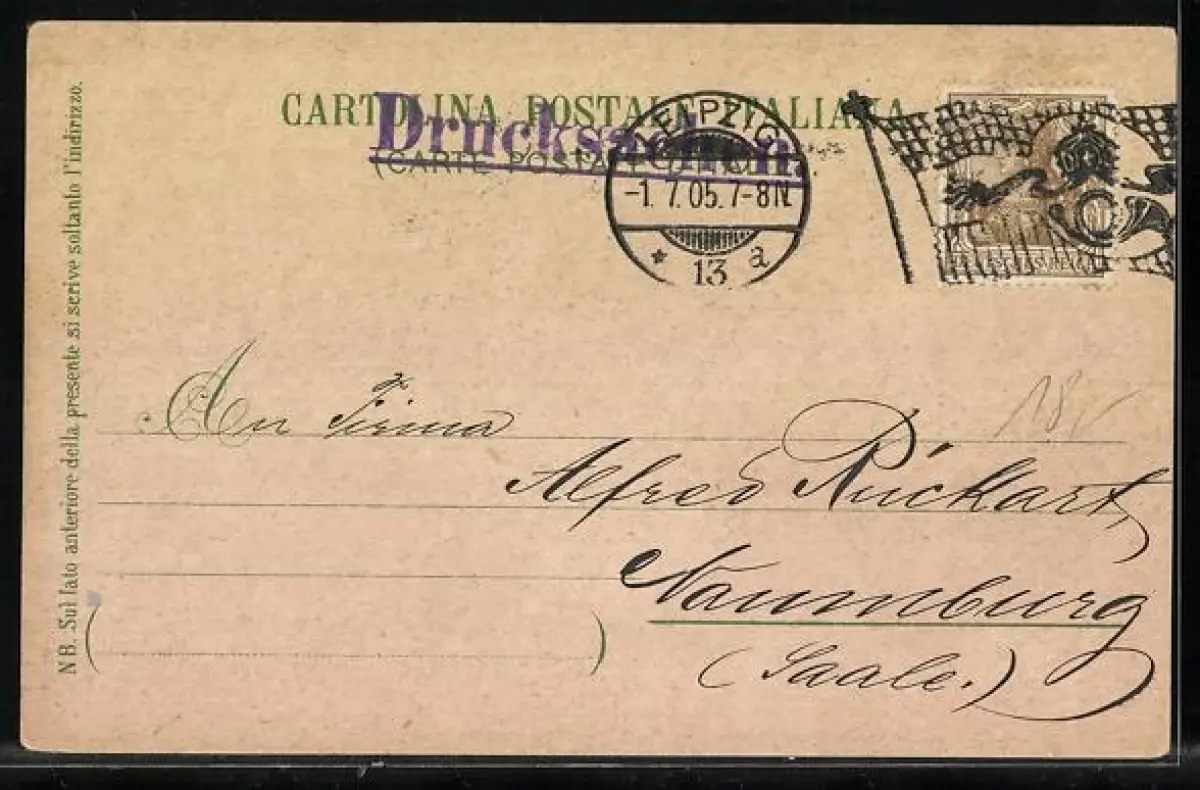 CARTOLINA POSTALE ITALIANA
(CARTE POSTALE D'ITALIE)
Drucksachen.
LEIPZIG
-1.7.05.7-8N.
* 13 a
An Firma
Alfred Rückart,
Naumburg
(Saale.)
18,
NB. Sul lato anteriore della presente si scrive soltanto l'indirizzo.